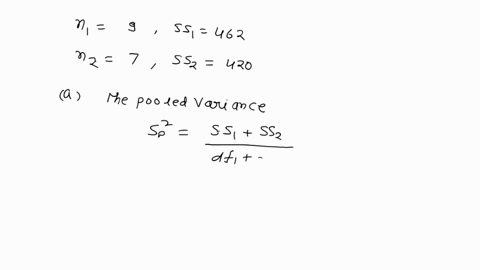 n₁ = 9 , SS₁ = 462
n₂ = 7 , SS₂ = 420
(a) The pooled variance
Sp² = SS₁ + SS₂
df₁ + -